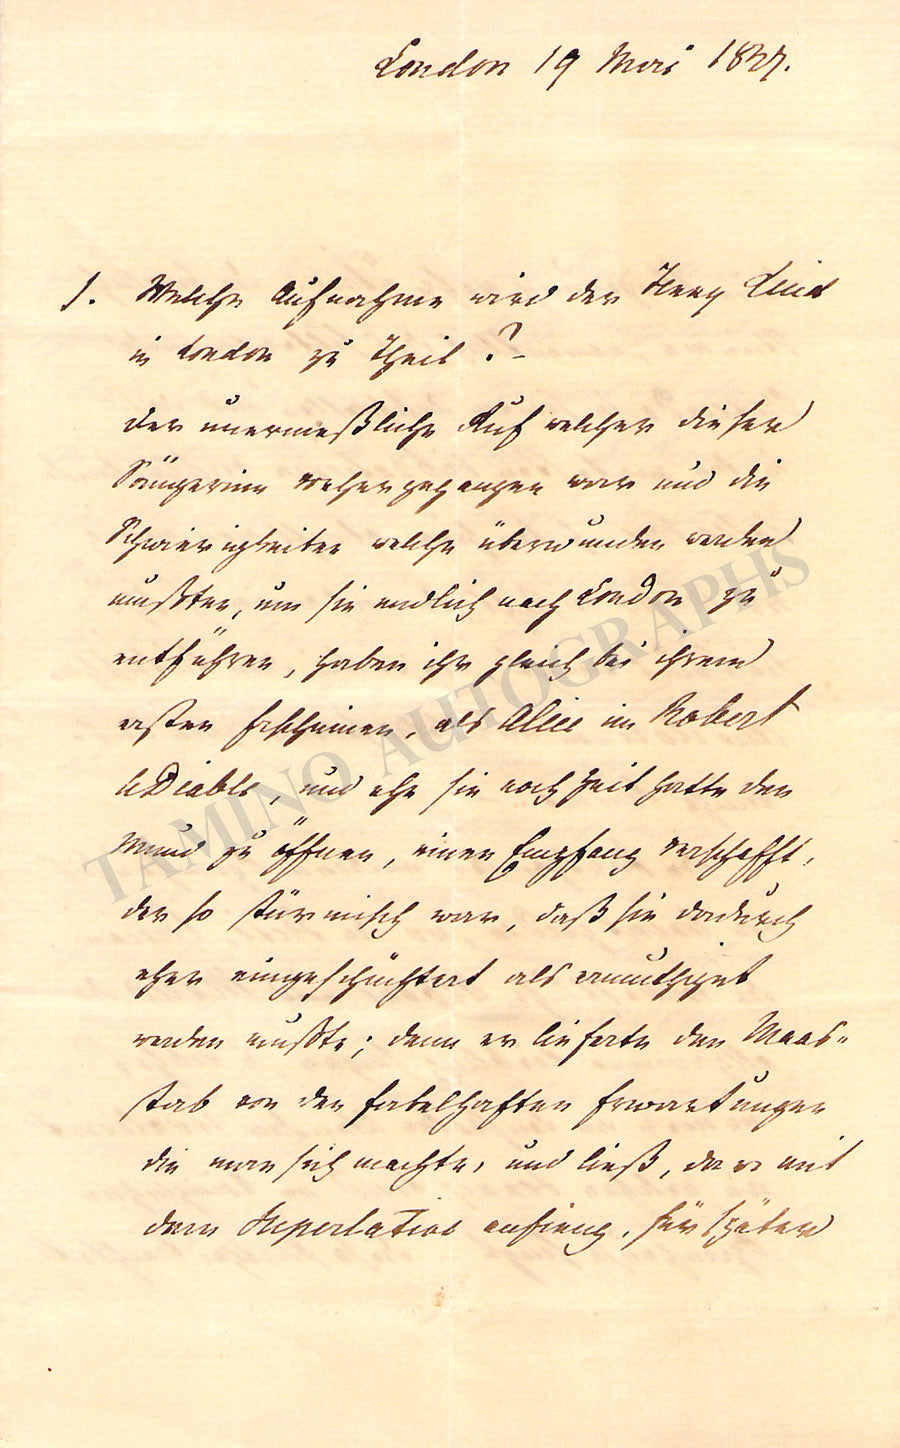 London 19 Mai 1847.
1. Welche Aufnahme wird der Jenny Lind
in London zu Theil?–
Der unermeßliche Ruf welcher dieser
Sängerinn vorhergegangen war und die
Schwierigkeiten welche überwunden werden
mußten, um sie endlich nach London zu
entführen, haben ihr gleich bei ihrem
ersten Erscheinen, als Alice in Robert
le Diable, und ehe sie noch Zeit hatte den
Mund zu öffnen, einen Empfang verschafft,
der so stürmisch war, daß sie dadurch
eher eingeschüchtert als ermuthiget
werden mußte; denn er lieferte den Maas-
stab von den fabelhaften Erwartungen
die man sich machte, und ließ, da es mit
dem Superlativ anfieng, für später
TAMINO AUTOGRAPHS